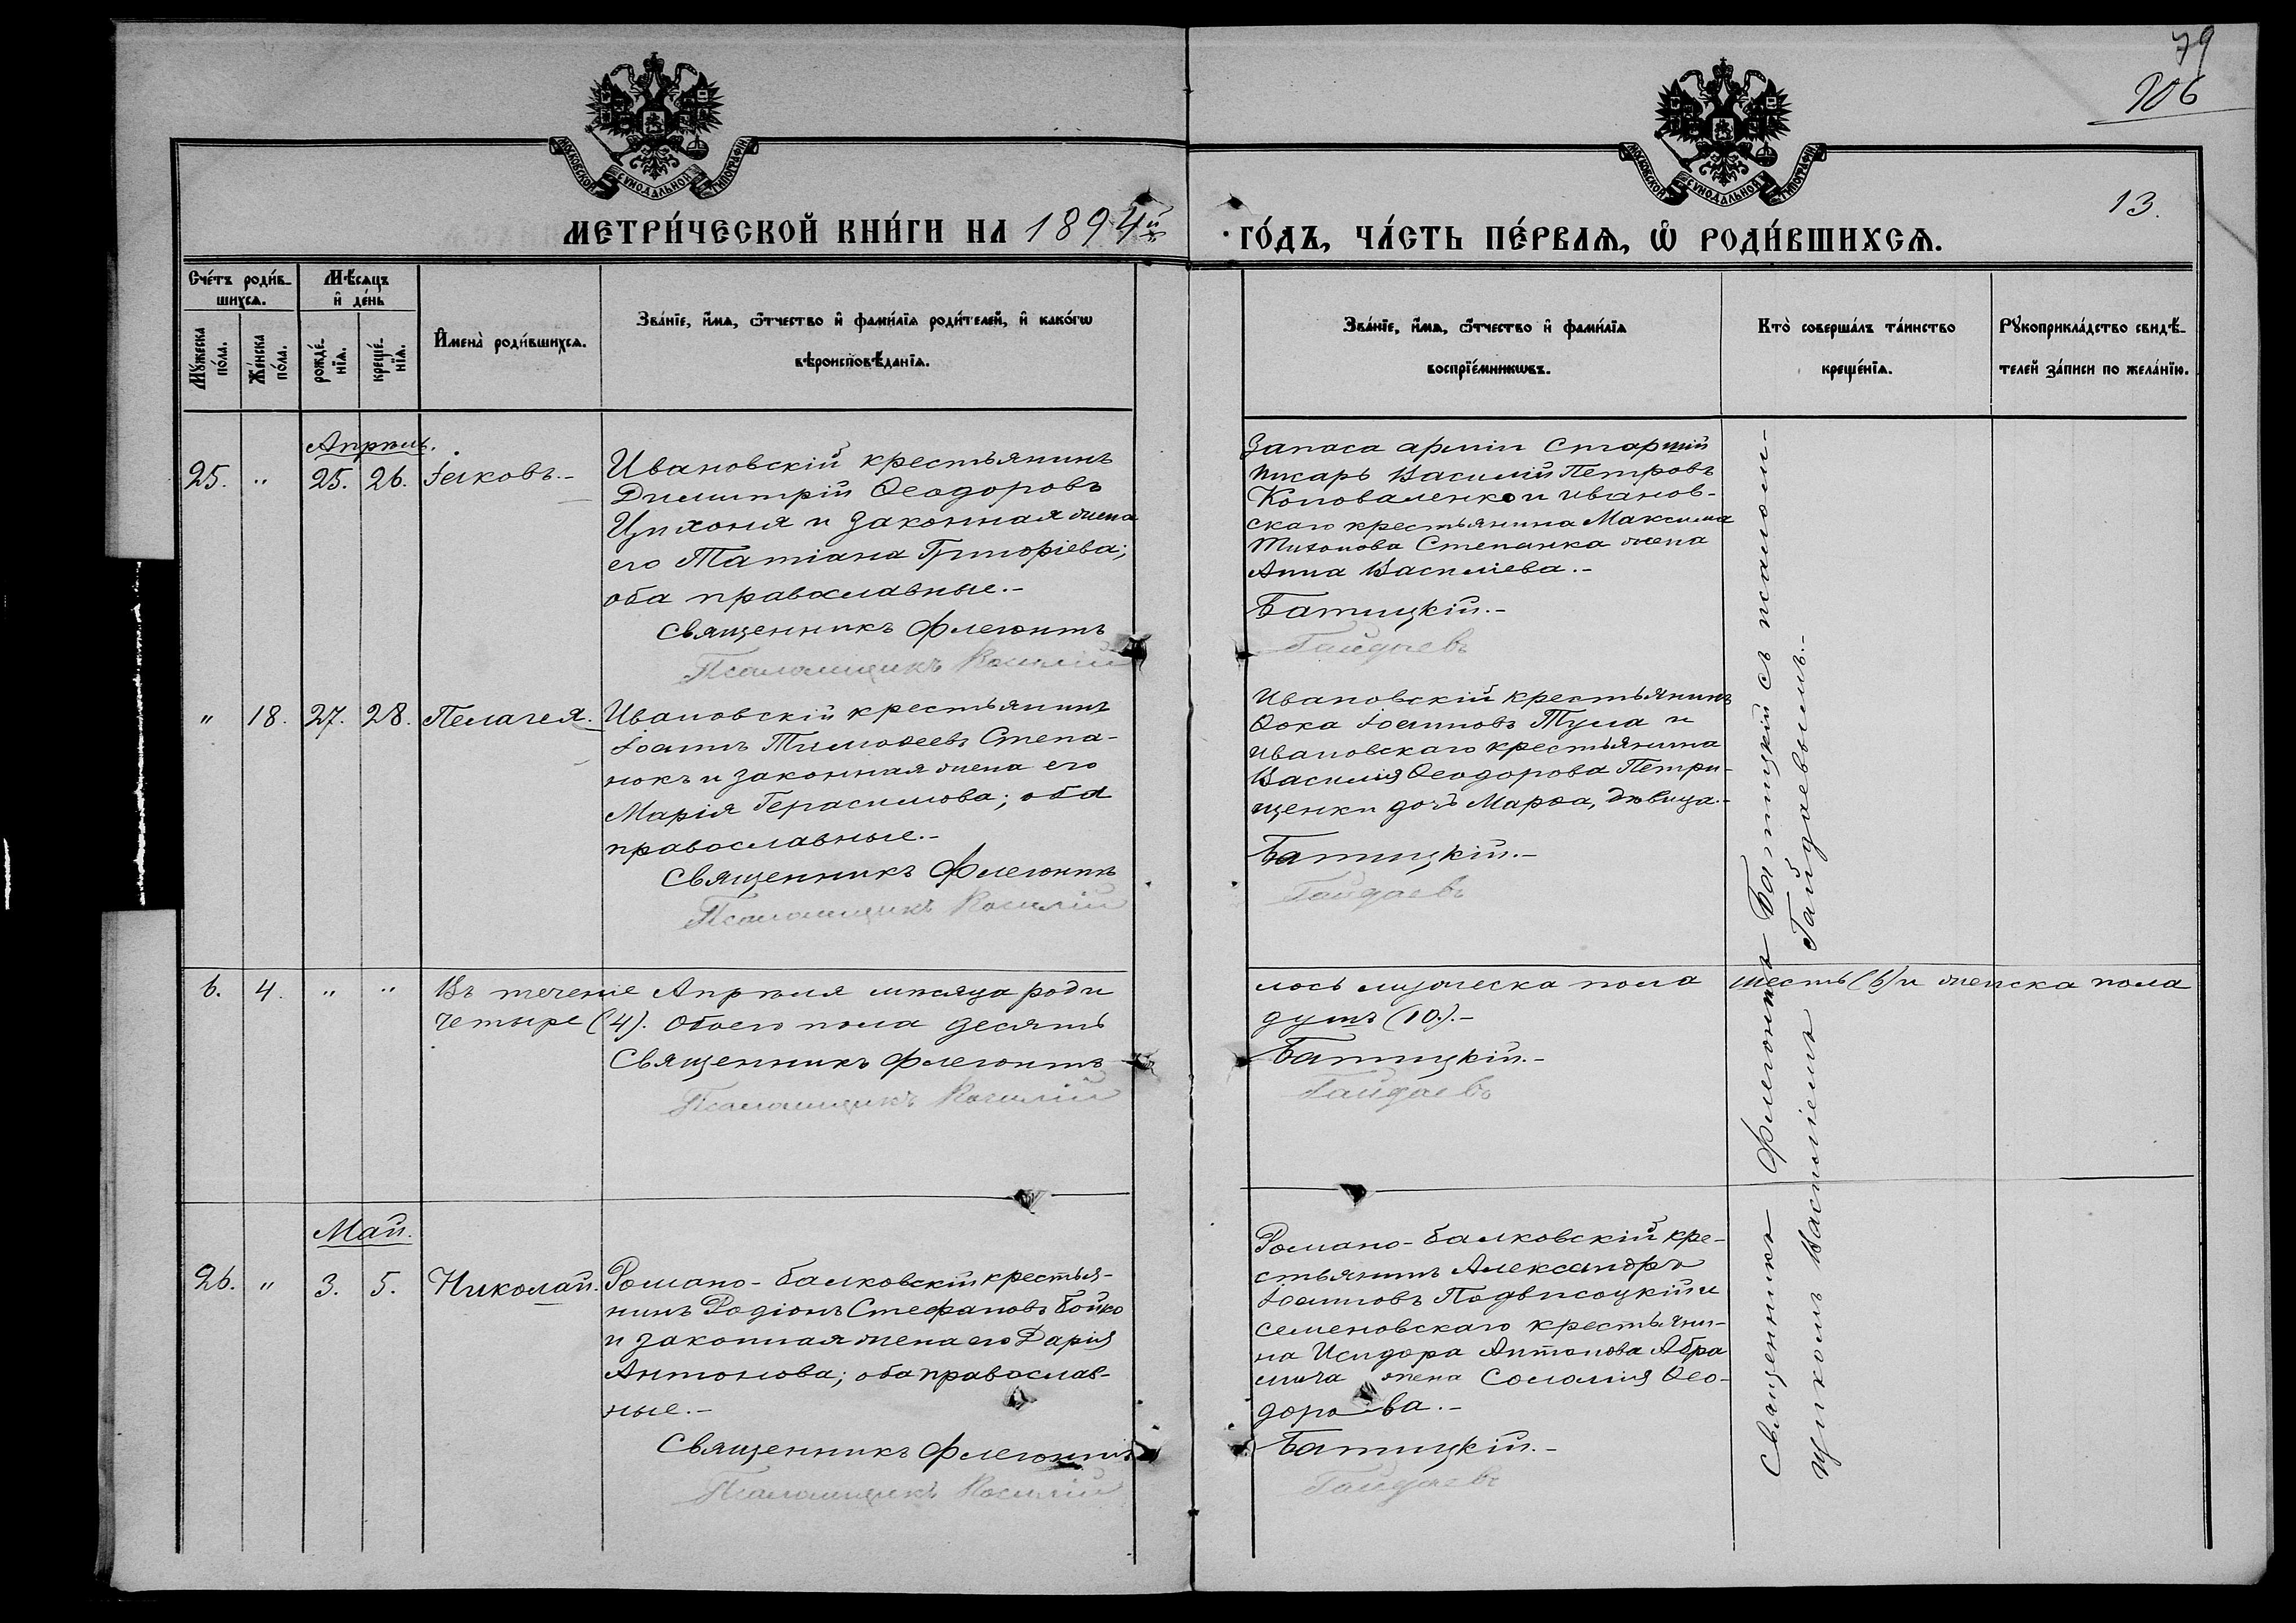 79
106
13.
МОСКОВСКОЙ СѴНОДАЛЬНОЙ ТИПОГРАФІИ
МЕТРИ́ЧЕСКОЙ КНИ́ГИ НА 1894й
МОСКОВСКОЙ СѴНОДАЛЬНОЙ ТИПОГРАФІИ
ГО́ДЪ, ЧА́СТЬ ПЕ́РВАѦ, Ѽ РОДИ́ВШИХСѦ.
Сче́тъ роди́в-
шихсѧ.
Мꙋ́жеска по́ла.
Же́нска по́ла.
Мѣ́сѧцъ
и҆ де́нь
рожде́нїѧ.
креще́нїѧ.
И҆мена̀ роди́вшихсѧ.
Зва́нїе, и҆́мѧ, ѻ҆́тчество и҆ фами́лїѧ роди́телей, и҆ како́гѡ
вѣроисповѣ́данїѧ.
Зва́нїе, и҆́мѧ, ѻ҆́тчество и҆ фами́лїѧ
воспрїе́мникѡвъ.
Кто̀ соверша́лъ та́инство
креще́нїѧ.
Рꙋкоприкла́дство свидѣ́-
телей за́писи по жела́нїю.
Апрѣль.
25. " 25. 26. Іаковъ.-
Ивановскій крестьянинъ
Димитрій Ѳеодоровъ
Цихоня и законная жена
его Татіана Григоріева;
оба православные.-
Священникъ Флегонтъ
Псаломщикъ Василій
Запаса арміи старшій
писарь Василій Петровъ
Коноваленко и иванов-
скаго крестьянина Максима
Тихонова Степанка жена
Анна Василіева.-
Батицкій.-
Гайдаевъ
" 18. 27. 28. Пелагея.
Ивановскій крестьянинъ
Іоаннъ Тимоѳеевъ Степа-
нокъ и законная жена его
Марія Герасимова; оба
православные.-
Священникъ Флегонтъ
Псаломщикъ Василій
Ивановскій крестьянинъ
Ѳока Іоанновъ Тула и
ивановскаго крестьянина
Василія Ѳеодорова Петри-
щенки дочь Марѳа, дѣвица.-
Батицкій.-
Гайдаевъ
6. 4. " "
Въ теченіе Апрѣля мѣсяца роди
лось мужеска пола шесть (6) и женска пола
четыре (4). Обоего пола десять
душъ (10).-
Священникъ Флегонтъ
Батицкій.-
Псаломщикъ Василій
Гайдаевъ
Май.
26. " 3. 5. Николай.
Романо-балковскій крестья-
нинъ Родіонъ Стефановъ Бойко
и законная жена его Дарія
Антонова; оба православ-
ные.-
Священникъ Флегонтъ
Псаломщикъ Василій
Романо-балковскій кре-
стьянинъ Александръ
Іоанновъ Подвысоцкій и
семеновскаго крестьяни-
на Исидора Антонова Абра
мича жена Соломія Ѳео-
дорова.-
Батицкій.-
Гайдаевъ
Священникъ Флегонтъ Батицкій съ псалом-
щикомъ Василіемъ Гайдаевымъ.-